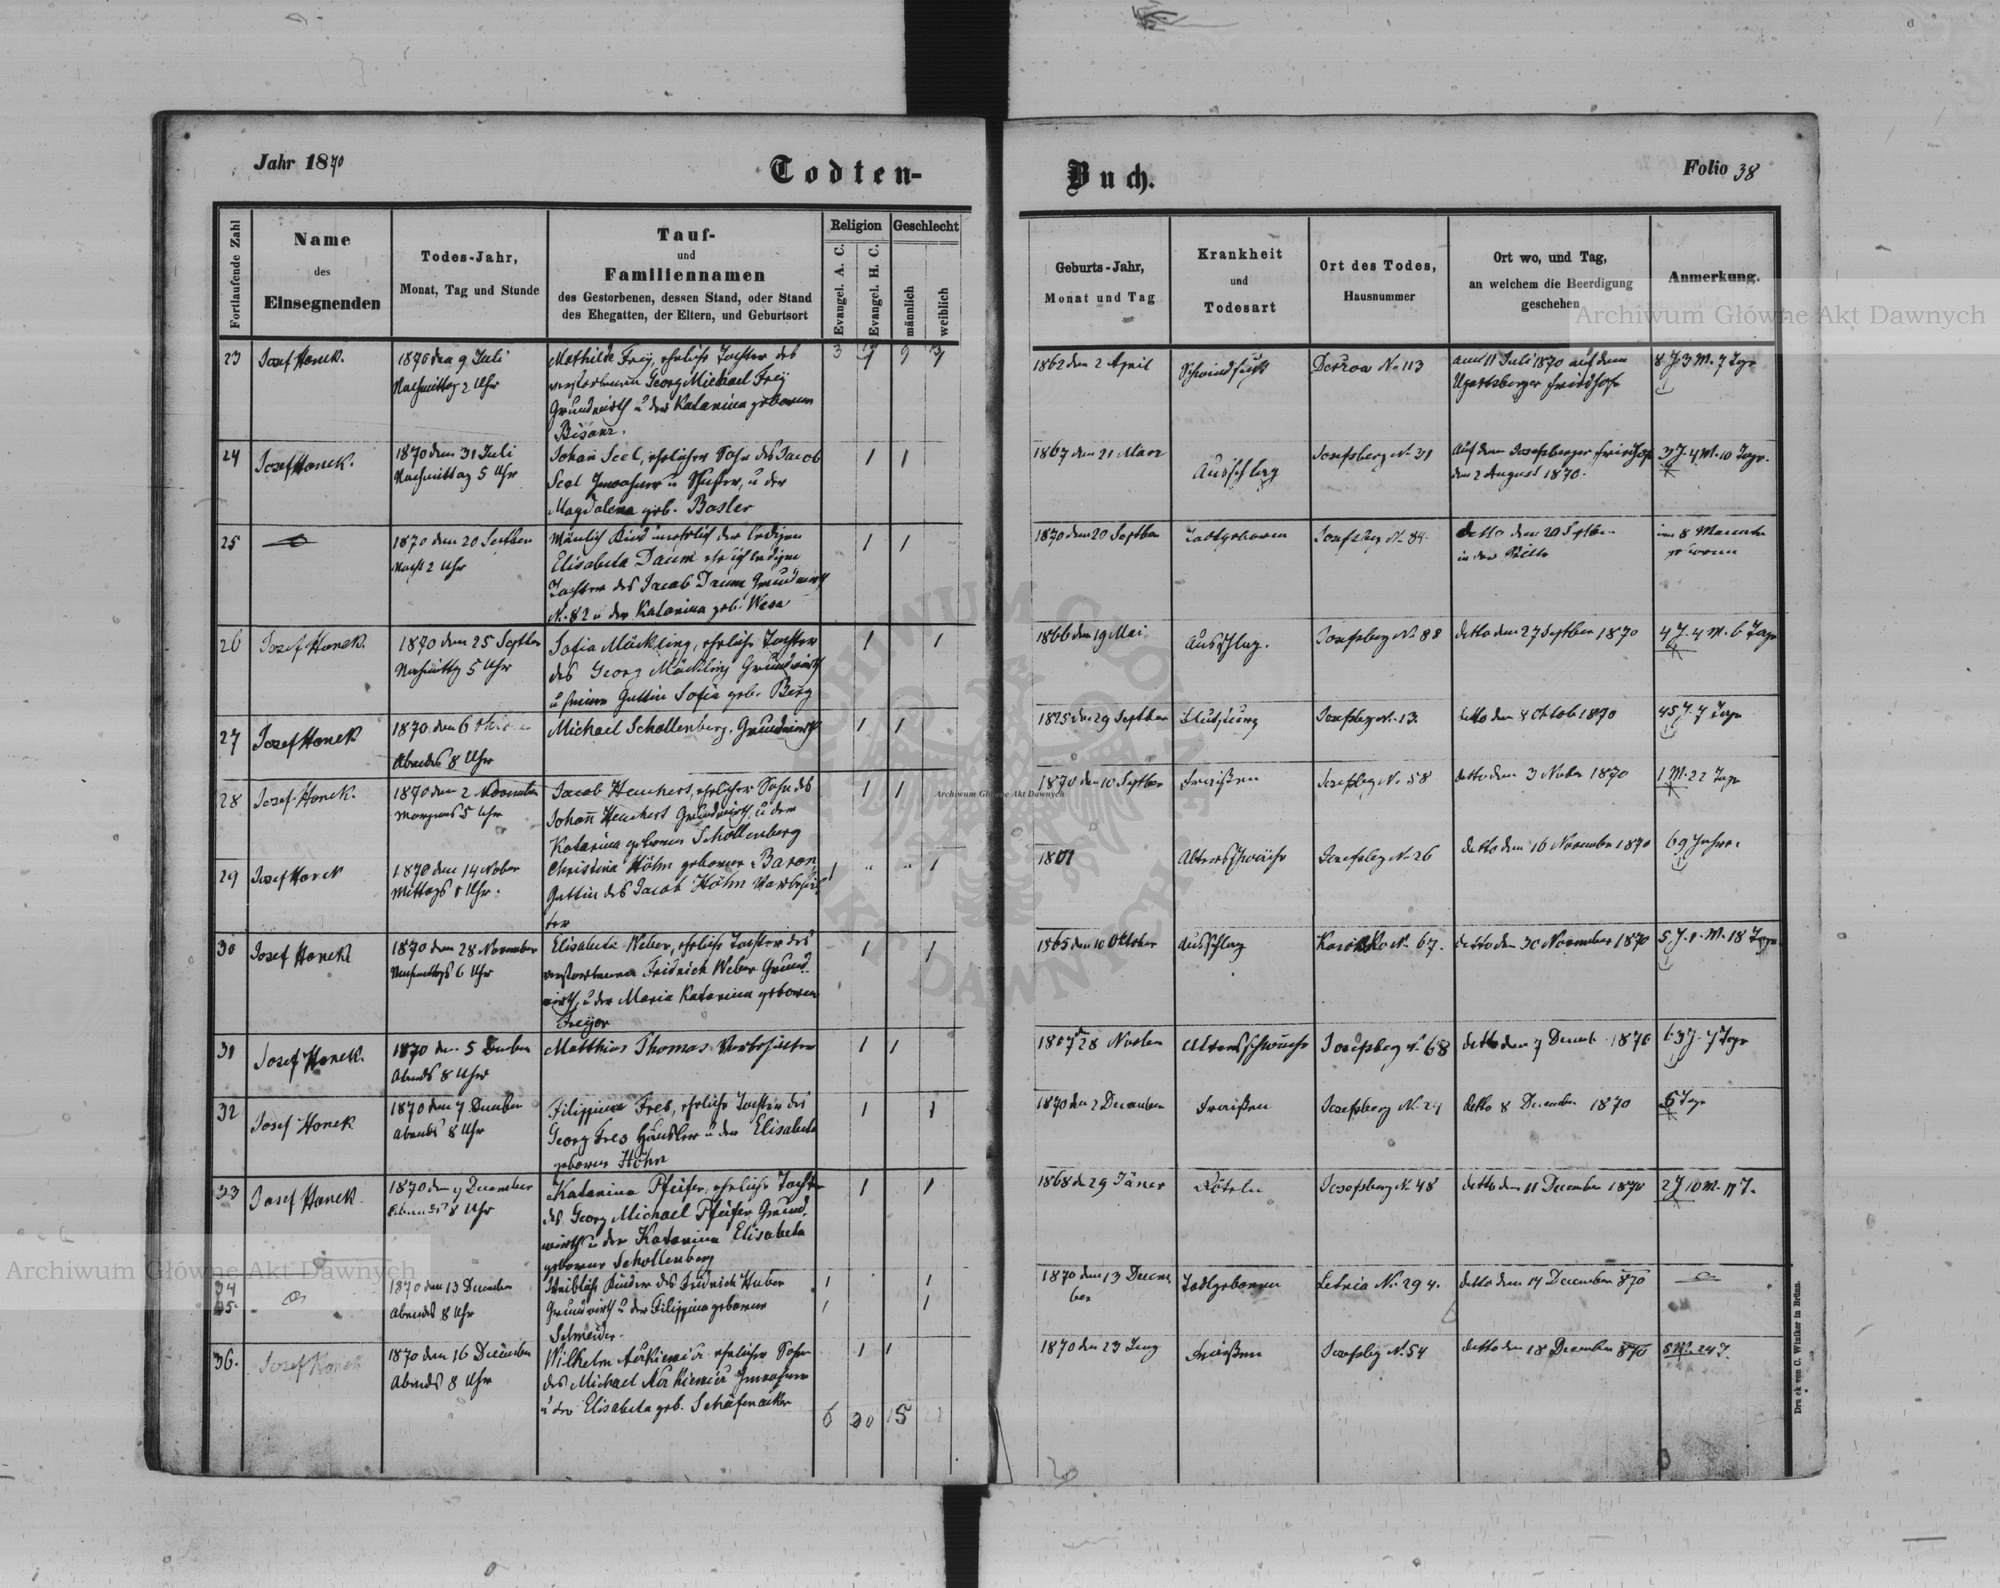 Jahr 1870
Todten-
Buch.
Folio 38
Fortlaufende Zahl
Name
des
Einsegnenden
Todes-Jahr,
Monat, Tag und Stunde
Tauf-
und
Familiennamen
des Gestorbenen, dessen Stand, oder Stand
des Ehegatten, der Eltern, und Geburtsort
Religion
Evangel. A. C.
Evangel. H. C.
Geschlecht
männlich
weiblich
Geburts-Jahr,
Monat und Tag
Krankheit
und
Todesart
Ort des Todes,
Hausnummer
Ort wo, und Tag,
an welchem die Beerdigung
geschehen
Anmerkung.
23
Josef Honek.
1870 den 9 Juli
Nachmittag 2 Uhr
Mathilde Frey, eheliche Tochter des
verstorbenen Georg Michael Frey
Grundwirth u der Katarina geborenen
Bisanz.
1862 den 2 April
Schwindsucht
No 113
am 11 Juli 1870 auf dem
Ugartsberger Friedhofe
8 J. 3 M. 7 Tage
24
Josef Honek.
1870 den 31 Juli
Nachmittag 5 Uhr
Johann Seel, ehelicher Sohn des Jacob
Seel Inwohner u, u der
Magdalena geb. Basler
1 1
1867 den 21 März
Ausschlag
Josefsberg No. 31
Auf dem Josefsberger Friedhofe
den 2 August 1870.
3 J. 4 M. 10 Tage.
25
1870 den 20 Septber
Nacht 2 Uhr
Mänlich Kind unehelich der ledigen
Elisabeta Daum
Tochter des Jacob Daum Grundwirth
N. 82 u der Katarina geb. Wesa
1 1
1870 den 20 Septber
Todtgeboren
Josefsbg N. 84.
detto den 20 Septber
in der Stille
im 8 Monate
geboren
26
Josef Honek.
1870 den 25 Septber
Nachmittg 5 Uhr
Sofia Mäckling, eheliche Tochter
des Georg Mäckling Grundwirth
u seiner Gattin Sofia geb. Berg
1 1
1866 den 19 Mai
Ausschlag.
Josefsberg No. 88
detto den 27 Septber 1870
4 J. 4 M. 6 Tage
27
Josef Honek
1870 den 6
Abends 8 Uhr
Michael Schollenberg, Grundwirth
1 1
1825 den 29 Septber
Josefsbg N. 13.
detto den 8 Oktob 1870
45 J. 7 Tage
28
Josef Honek.
1870 den 2 November
Morgens 5 Uhr
Jacob Heuchert, ehelicher Sohn des
Johann Heuchert Grundwirth, u der
Katarina geborenen Schollenberg
1 1
1870 den 10 Septber
Fraißen
Josefsbg No. 58
detto den 3 Nober 1870
1 M. 22 Tage
29
Josef Honek
1870 den 14 Nober
Mittags 1 Uhr.
Christina Höhn geborene Baron,
Gattin des Jacob Höhn Vorbehält
ter
1 „ „ 1
1801
Altersschwäche
Josefsbg No. 26
detto den 16 November 1870
69 Jahre.
30
Josef Honek
1870 den 28 November
Nachmittags 6 Uhr
Elisabeta Weber, eheliche Tochter des
verstorbenen Fridrich Weber Grund-
wirth, u der Maria Katarina geborenen
1 1
1865 den 10 Oktober
Ausschlag
No. 67.
detto den 30 November 1870
5 J. 1 M. 18 Tage
31
Josef Honek.
1870 den 5 Decber
Abends 8 Uhr
Matthias Thomas Vorbehälter
1 1
1807 28 Nover
Altersschwäche
Josefsberg N. 68
detto den 7 Decemb. 1870
63 J. 7 Tage
32
Josef Honek
1870 den 7 December
Abends 8 Uhr
Filippina Fres, eheliche Tochter des
Georg Fres Häusler u der Elisabeta
geborene Höhn
1 1
1870 den 2 December
Fraißen
Josefsberg N. 24
detto 8 December 1870
5 Tage
33
Josef Honek.
1870 den 9 December
Abends 8 Uhr
Katarina Pfeifer, eheliche Tochter
des Georg Michael Pfeifer Grund-
wirth u der Katarina Elisabeta
geborene Schollenberg
1 1
1868 d 29 Jäner
Röteln
Josefsberg No. 48
detto den 11 December 1870
2 J 10 M. 11 T.
34
35.
1870 den 13 December
Abends 8 Uhr
Weibliche Kinder des Fridrich Huber
Grundwirth u der Filippina geborene
Schneider.
1 1
1 1
1870 den 13 Decem
ber
Todtgeboren
Letnia No. 294.
detto den 14 December 870
36.
Josef Honek
1870 den 16 December
Abends 8 Uhr
Wilhelm ehelicher Sohn
des Michael Inwohner
u der Elisabeta geb.
1 1
1870 den 23
Fraißen
Josefsbg N. 54
detto den 18 December 870
24 T.
6 20 15
Druck von C. Winiker in Brünn.
Archiwum Główne Akt Dawnych
Archiwum Główne Akt Dawnych
Archiwum Główne Akt Dawnych
ARCHIWUM GŁÓWNE AKT DAWNYCH